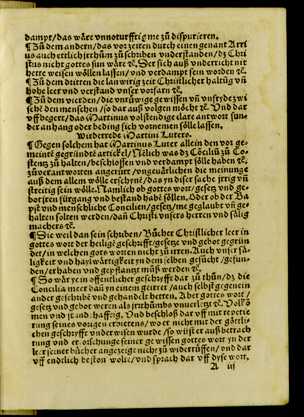 dampt/ das wäre vnnoturfftig me zů disputieren.
¶ Zů dem andern/ das vor zeiten durch einen genant Arri
us auch ettlich irthům zů schriben vnderstanden/ dz Chri
stus nicht gottes sun wäre ꝛc. Der sich auß vnderricht nit
hette weisen wöllen lassen/ vnd verdampt sem worden ꝛc.
¶ Zům dritten die lanwirig zeit Christlicher haltūg vn̄
hohe leer vnd vorstand vnser vorfarn ꝛc.
¶ Zům vierden/ die vnrůwige gewissen vn̄ vnfrydezwi
schē den menschen/ so dar auß volgen möcht ꝛc. Vnd dar
vff begert/ das Martinus volstendige clare antwort sun
der anhang oder beding sich vornemen sölle lassen.
Widerrede Martini Luters.
¶ Gegen solchem hat Martinus Luter allein den vor ge
meinte gegründte artickel/ Nēlich was dz Cöcilin̄ zů Co
stenz zů halten/ beschlossen vnd verdampt sölle haben ꝛc.
zů verantworten angerürt/ vngeuärlichen die meinunge
auß dem allem wölle erschynē/ das yn diser sache zwig vn̄
streitig sein wölle. Namlich ob gottes wort/ gesetz vnd ge
bot iren fürgang vnd bestand habē söllen. Oder ob der Ba
pst vnd menschliche Concilien/ gsetz/ me geglaubt vn̄ ge
halten solten werden/ dan̄ Christi vnsers herren vnd sälig
machers ꝛc.
¶ Die weil dan sein schriben/ Bücher Christlicher leer in
gottes wort der heiligē geschrifft/ gesetz vnd gebot gegrün
det/ in welchen gots worten nicht zů irren. Auch vnser säl
igkeit vnd haylwärtigkeit yn dem selben gesücht/ gefun-
den/ erhaben vnd gepflantzt můß werden ꝛc.
¶ So wär ye in offentlicher geschrifft dar zů thůn/ dz die
Concilia meer dan yn einem getrüt/ auch selbst gegenein
ander geschribn̄ vnd gehandelt hetten. Aber gottes wort/
gesetz vnd gebot weren als irrthůmbs vnuerletzt ꝛc. Vast
men vnd stand hafftig. Vnd beschloß dar vff mit repetie
rung seines vorigen erbietens/ wo er nicht mit der götli-
chen geschryfft vnderwisen wurde/ so wüst er auß betrach
tung vnd erforschung seiner gewissen gottes wort yn der
leer seiner bücher angezeige nicht zů widerrüffen/ vnd dar
vff endtlich besteen wölte/ vnd sprach dar vff dyse wort,
A iij